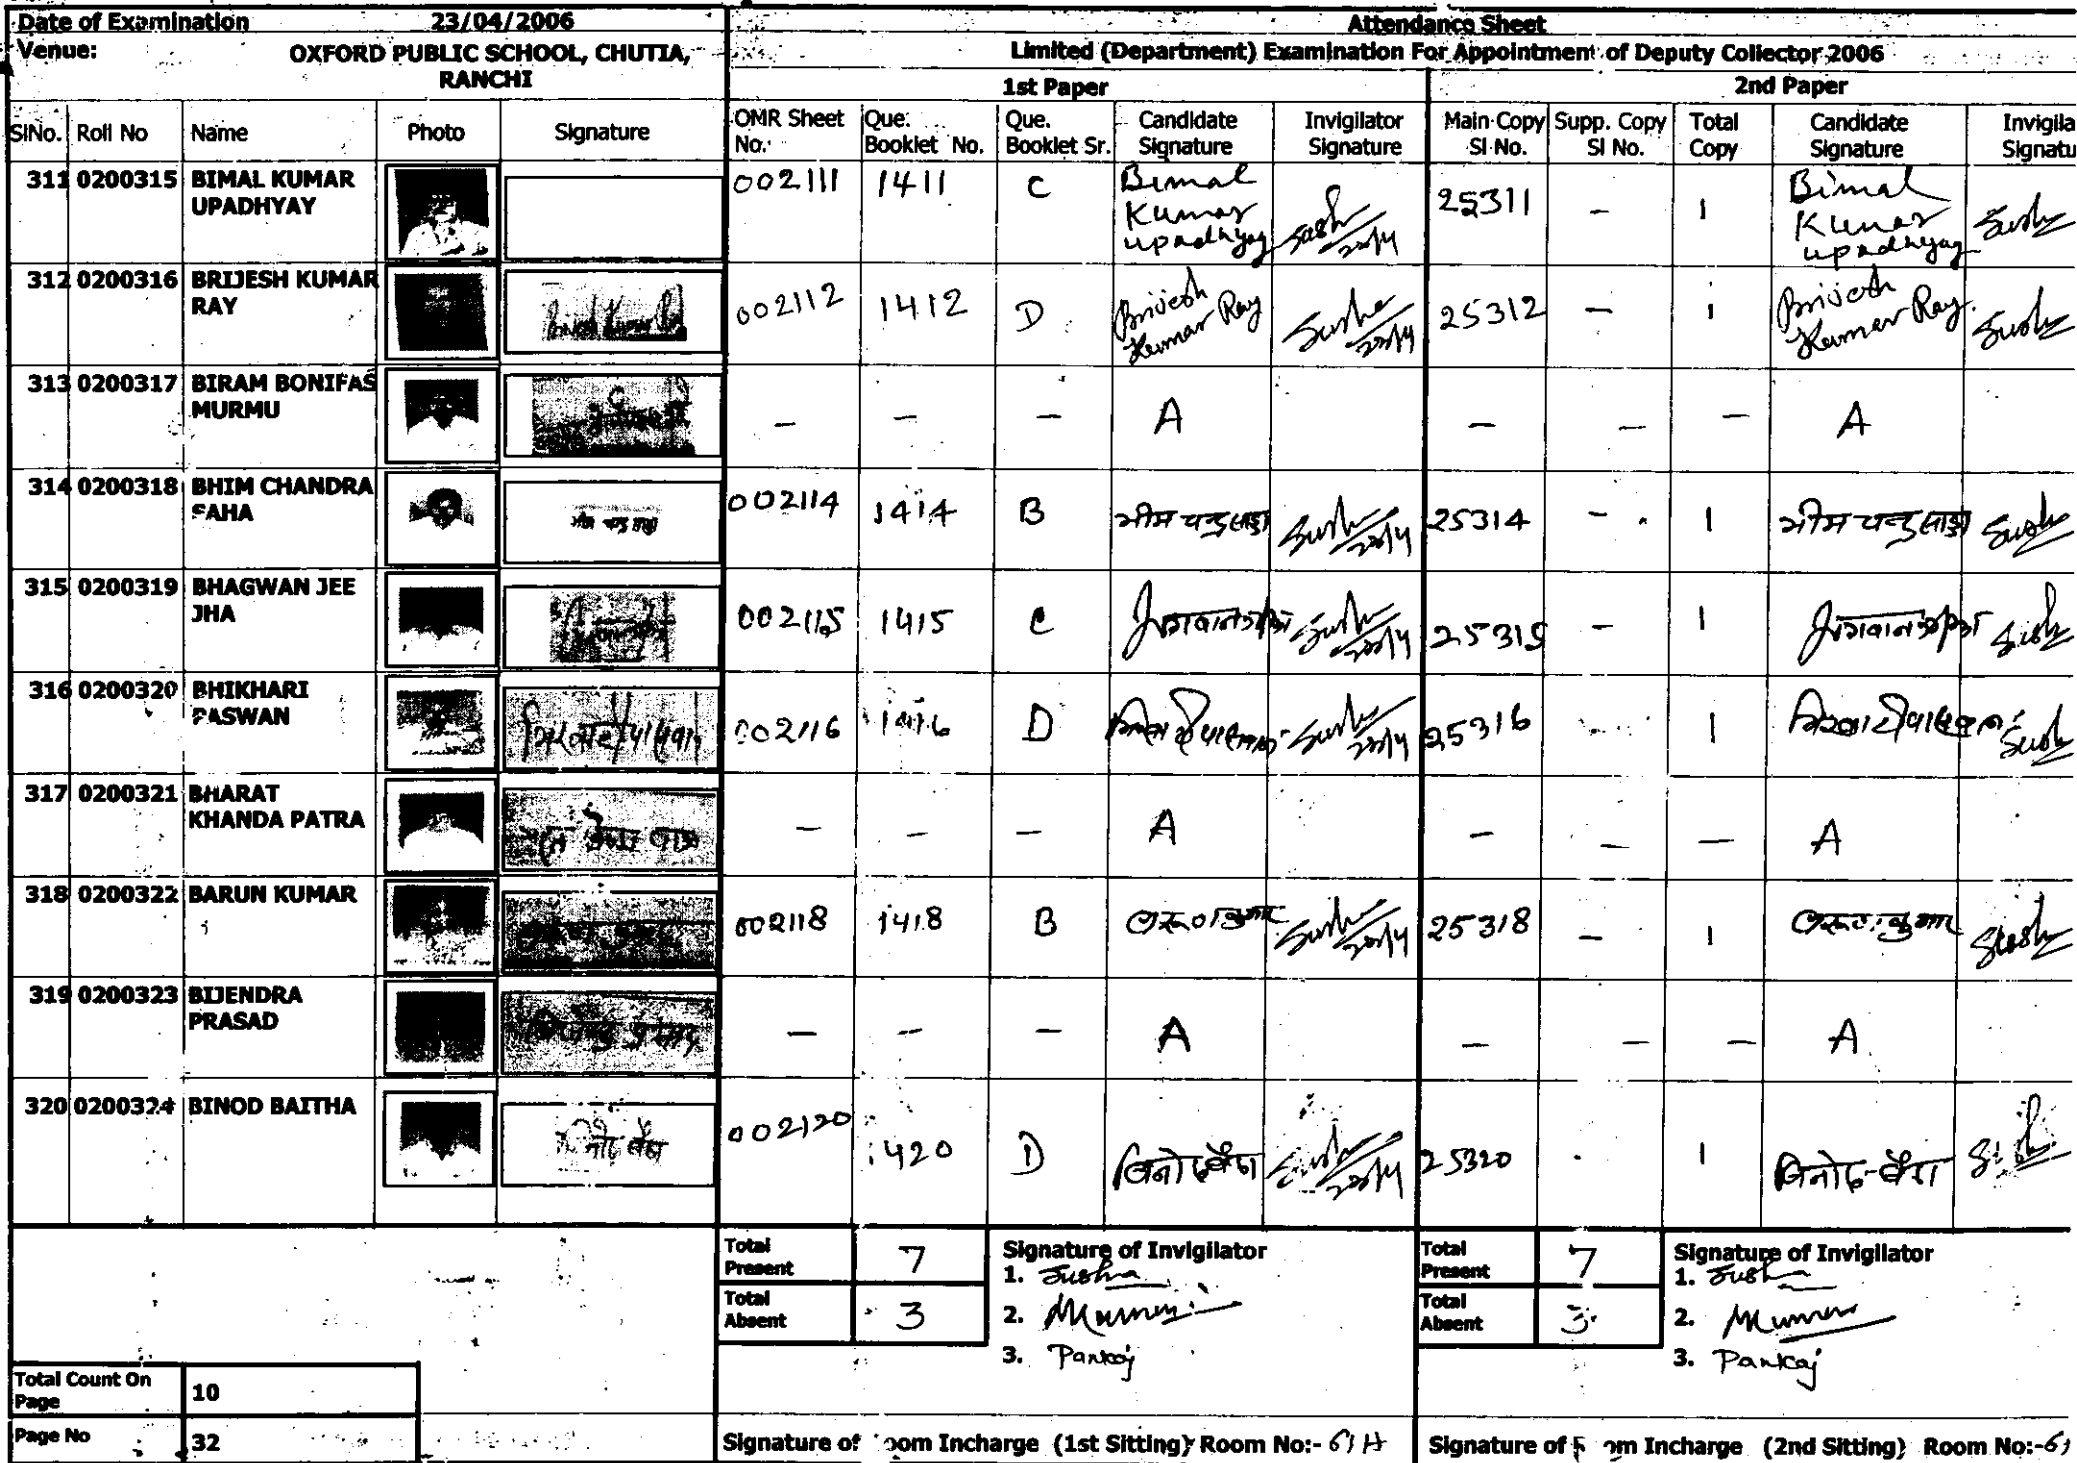 Date of Examination 23/04/2006
Attendance Sheet
Venue: OXFORD PUBLIC SCHOOL, CHUTIA, RANCHI
Limited (Department) Examination For Appointment of Deputy Collector 2006
1st Paper 2nd Paper
SlNo. Roll No Name Photo Signature OMR Sheet No. Que. Booklet No. Que. Booklet Sr. Candidate Signature Invigilator Signature Main Copy Sl No. Supp. Copy Sl No. Total Copy Candidate Signature Invigila Signatu
311 0200315 BIMAL KUMAR UPADHYAY 002111 1411 C Bimal Kumar upadhyay 25311 - 1 Bimal Kumar upadhyay
312 0200316 BRIJESH KUMAR RAY 002112 1412 D Brijesh Kumar Ray 25312 - 1 Brijesh Kumar Ray
313 0200317 BIRAM BONIFAS MURMU - - - A - - - A
314 0200318 BHIM CHANDRA SAHA 002114 1414 B भीम चन्द्र साहा 25314 - 1 भीम चन्द्र साहा
315 0200319 BHAGWAN JEE JHA 002115 1415 C 25315 - 1
316 0200320 BHIKHARI PASWAN 002116 1416 D 25316 - 1
317 0200321 BHARAT KHANDA PATRA - - - A - - - A
318 0200322 BARUN KUMAR 002118 1418 B 25318 - 1
319 0200323 BIJENDRA PRASAD - - - A - - - A
320 0200324 BINOD BAITHA 002120 1420 D विनोद बैठा 25320 - 1 विनोद बैठा
Total Present 7 Signature of Invigilator Total Present 7 Signature of Invigilator
1. Sushma 1. Sushma
Total Absent 3 2. Total Absent 3 2.
3. Pankaj 3. Pankaj
Total Count On Page 10
Page No 32 Signature of Room Incharge (1st Sitting) Room No:- Signature of Room Incharge (2nd Sitting) Room No:-